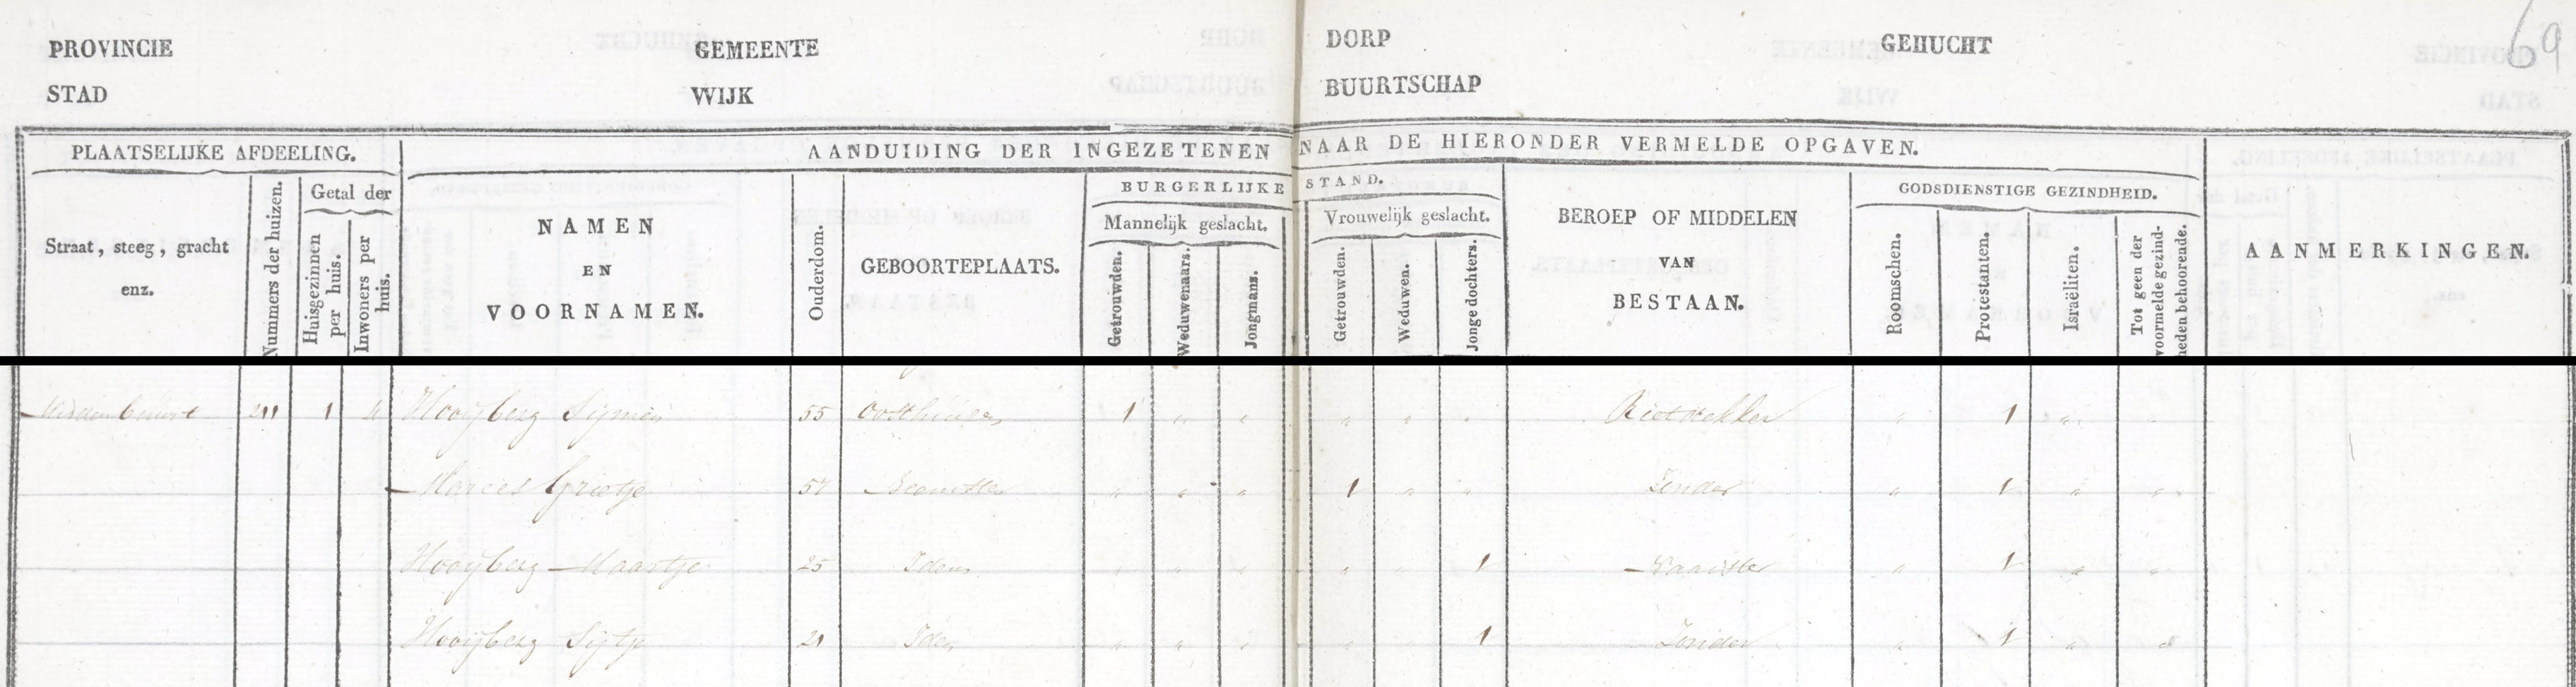 69
PROVINCIE GEMEENTE DORP GEHUCHT
STAD WIJK BUURTSCHAP
PLAATSELIJKE AFDEELING. AANDUIDING DER INGEZETENEN NAAR DE HIERONDER VERMELDE OPGAVEN.
Straat, steeg, gracht enz.
Nummers der huizen.
Getal der
Huisgezinnen per huis.
Inwoners per huis.
NAMEN
EN
VOORNAMEN.
Ouderdom.
GEBOORTEPLAATS.
BURGERLIJKE STAND.
Mannelijk geslacht.
Getrouwden.
Weduwenaars.
Jongmans.
Vrouwelijk geslacht.
Getrouwden.
Weduwen.
Jonge dochters.
BEROEP OF MIDDELEN
VAN
BESTAAN.
GODSDIENSTIGE GEZINDHEID.
Roomschen.
Protestanten.
Israëliten.
Tot geen der voormelde gezindheden behoorende.
AANMERKINGEN.
Middenbuurt 211 1 4 Hooijberg Sijmen 55 Oosthuizen 1 " " " " " Rietdekker " 1 " "
Marees Grietje 57 " " " 1 " " Zonder " 1 " "
Hooijberg Maartje 25 Idem " " " " " 1 Naaister " 1 " "
Hooijberg Sijtje 21 Idem " " " " " 1 Zonder " 1 " "